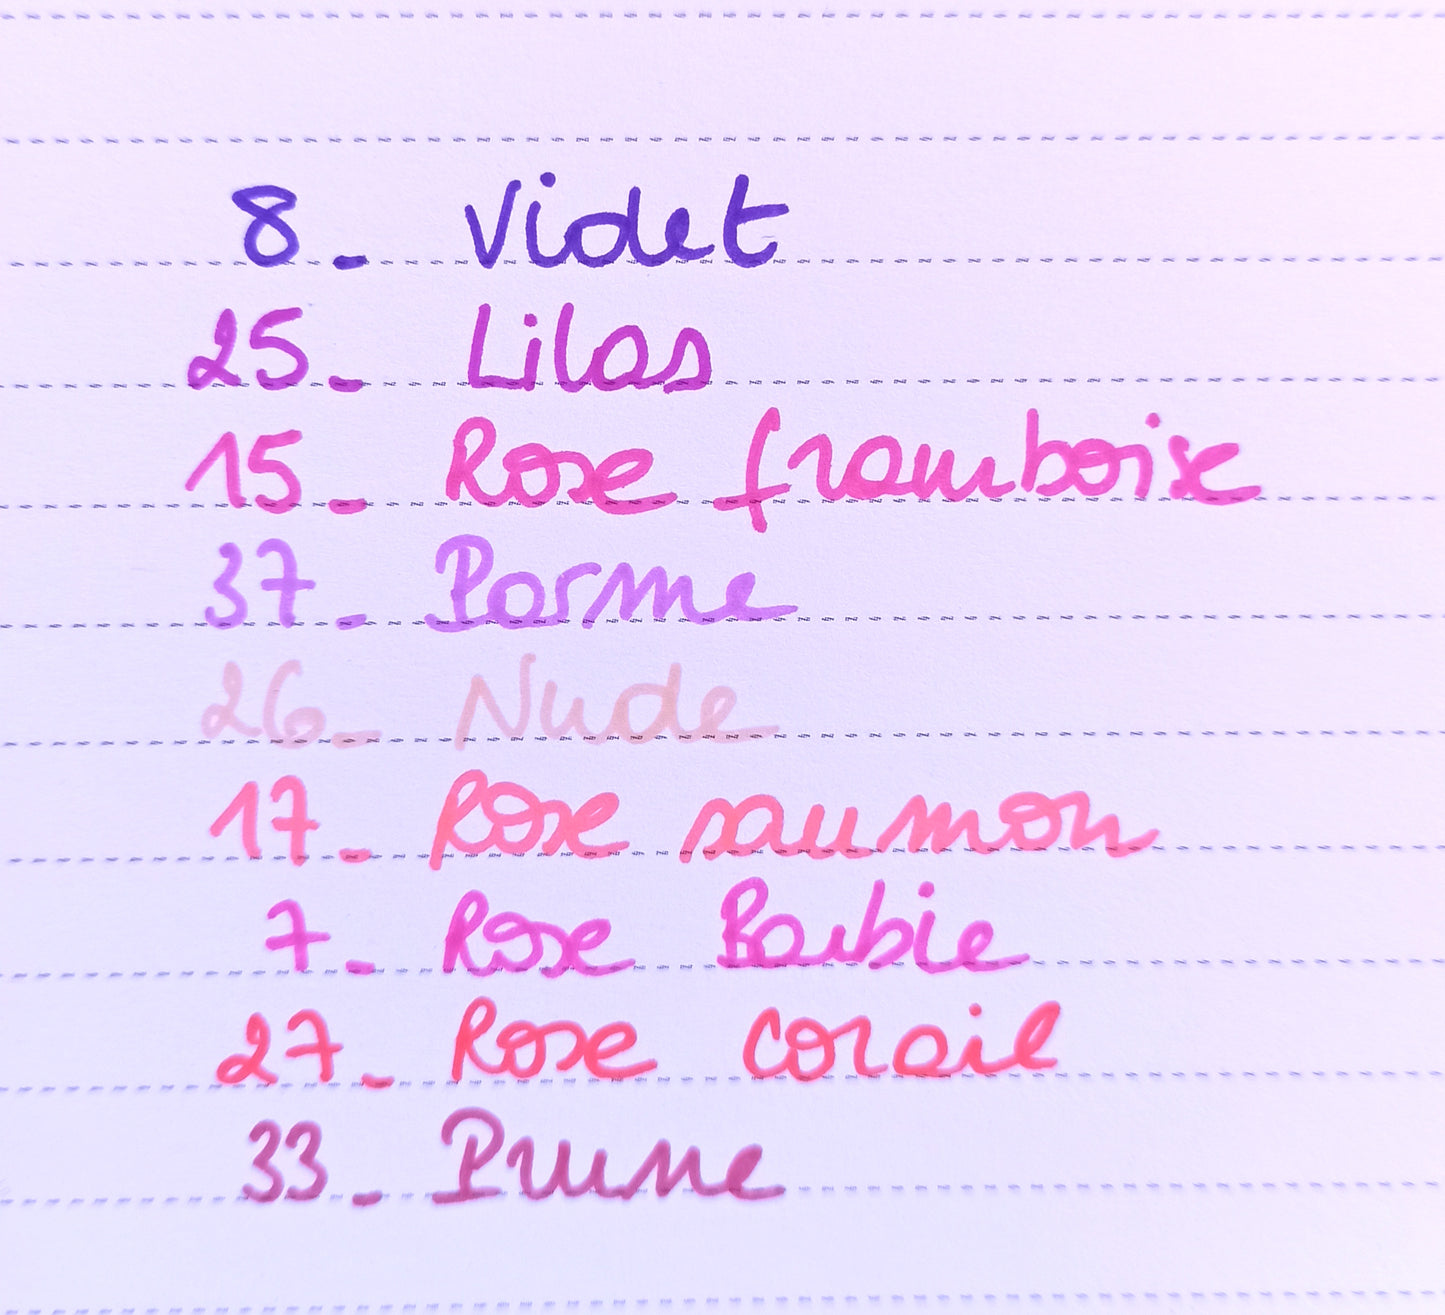 8_ Violet
25_ Lilas
15_ Rose framboise
37_ Parme
26_ Nude
17_ Rose saumon
7_ Rose Barbie
27_ Rose corail
33_ Prune